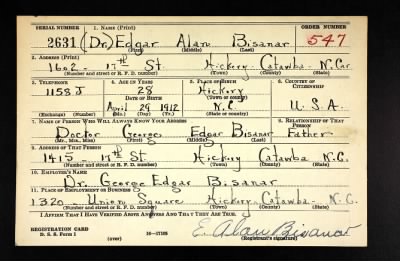 SERIAL NUMBER 1. NAME (Print) ORDER NUMBER
2631 (Dr.) Edgar Alan Bisanar 547
(First) (Middle) (Last)
2. ADDRESS (Print)
1602 - 17th St. Hickory - Catawba - N.Car.
(Number and street or R. F. D. number) (Town) (County) (State)
3. TELEPHONE 4. AGE IN YEARS 5. PLACE OF BIRTH 6. COUNTRY OF CITIZENSHIP
1158 J 28 Hickory
DATE OF BIRTH (Town or county)
April 29 1912 N.C. U.S.A.
(Exchange) (Number) (Mo.) (Day) (Yr.) (State or country)
7. NAME OF PERSON WHO WILL ALWAYS KNOW YOUR ADDRESS 8. RELATIONSHIP OF THAT PERSON
Doctor George Edgar Bisanar Father
(Mr., Mrs., Miss) (First) (Middle) (Last)
9. ADDRESS OF THAT PERSON
1415 17th St Hickory Catawba N.C.
(Number and street or R. F. D. number) (Town) (County) (State)
10. EMPLOYER'S NAME
Dr. George Edgar Bisanar
11. PLACE OF EMPLOYMENT OR BUSINESS
1320 - Union Square Hickory - Catawba - N.C.
(Number and street or R. F. D. number) (Town) (County) (State)
I AFFIRM THAT I HAVE VERIFIED ABOVE ANSWERS AND THAT THEY ARE TRUE.
REGISTRATION CARD
D. S. S. Form 1 16-17105
(over)
E. Alan Bisanar
(Registrant's signature)